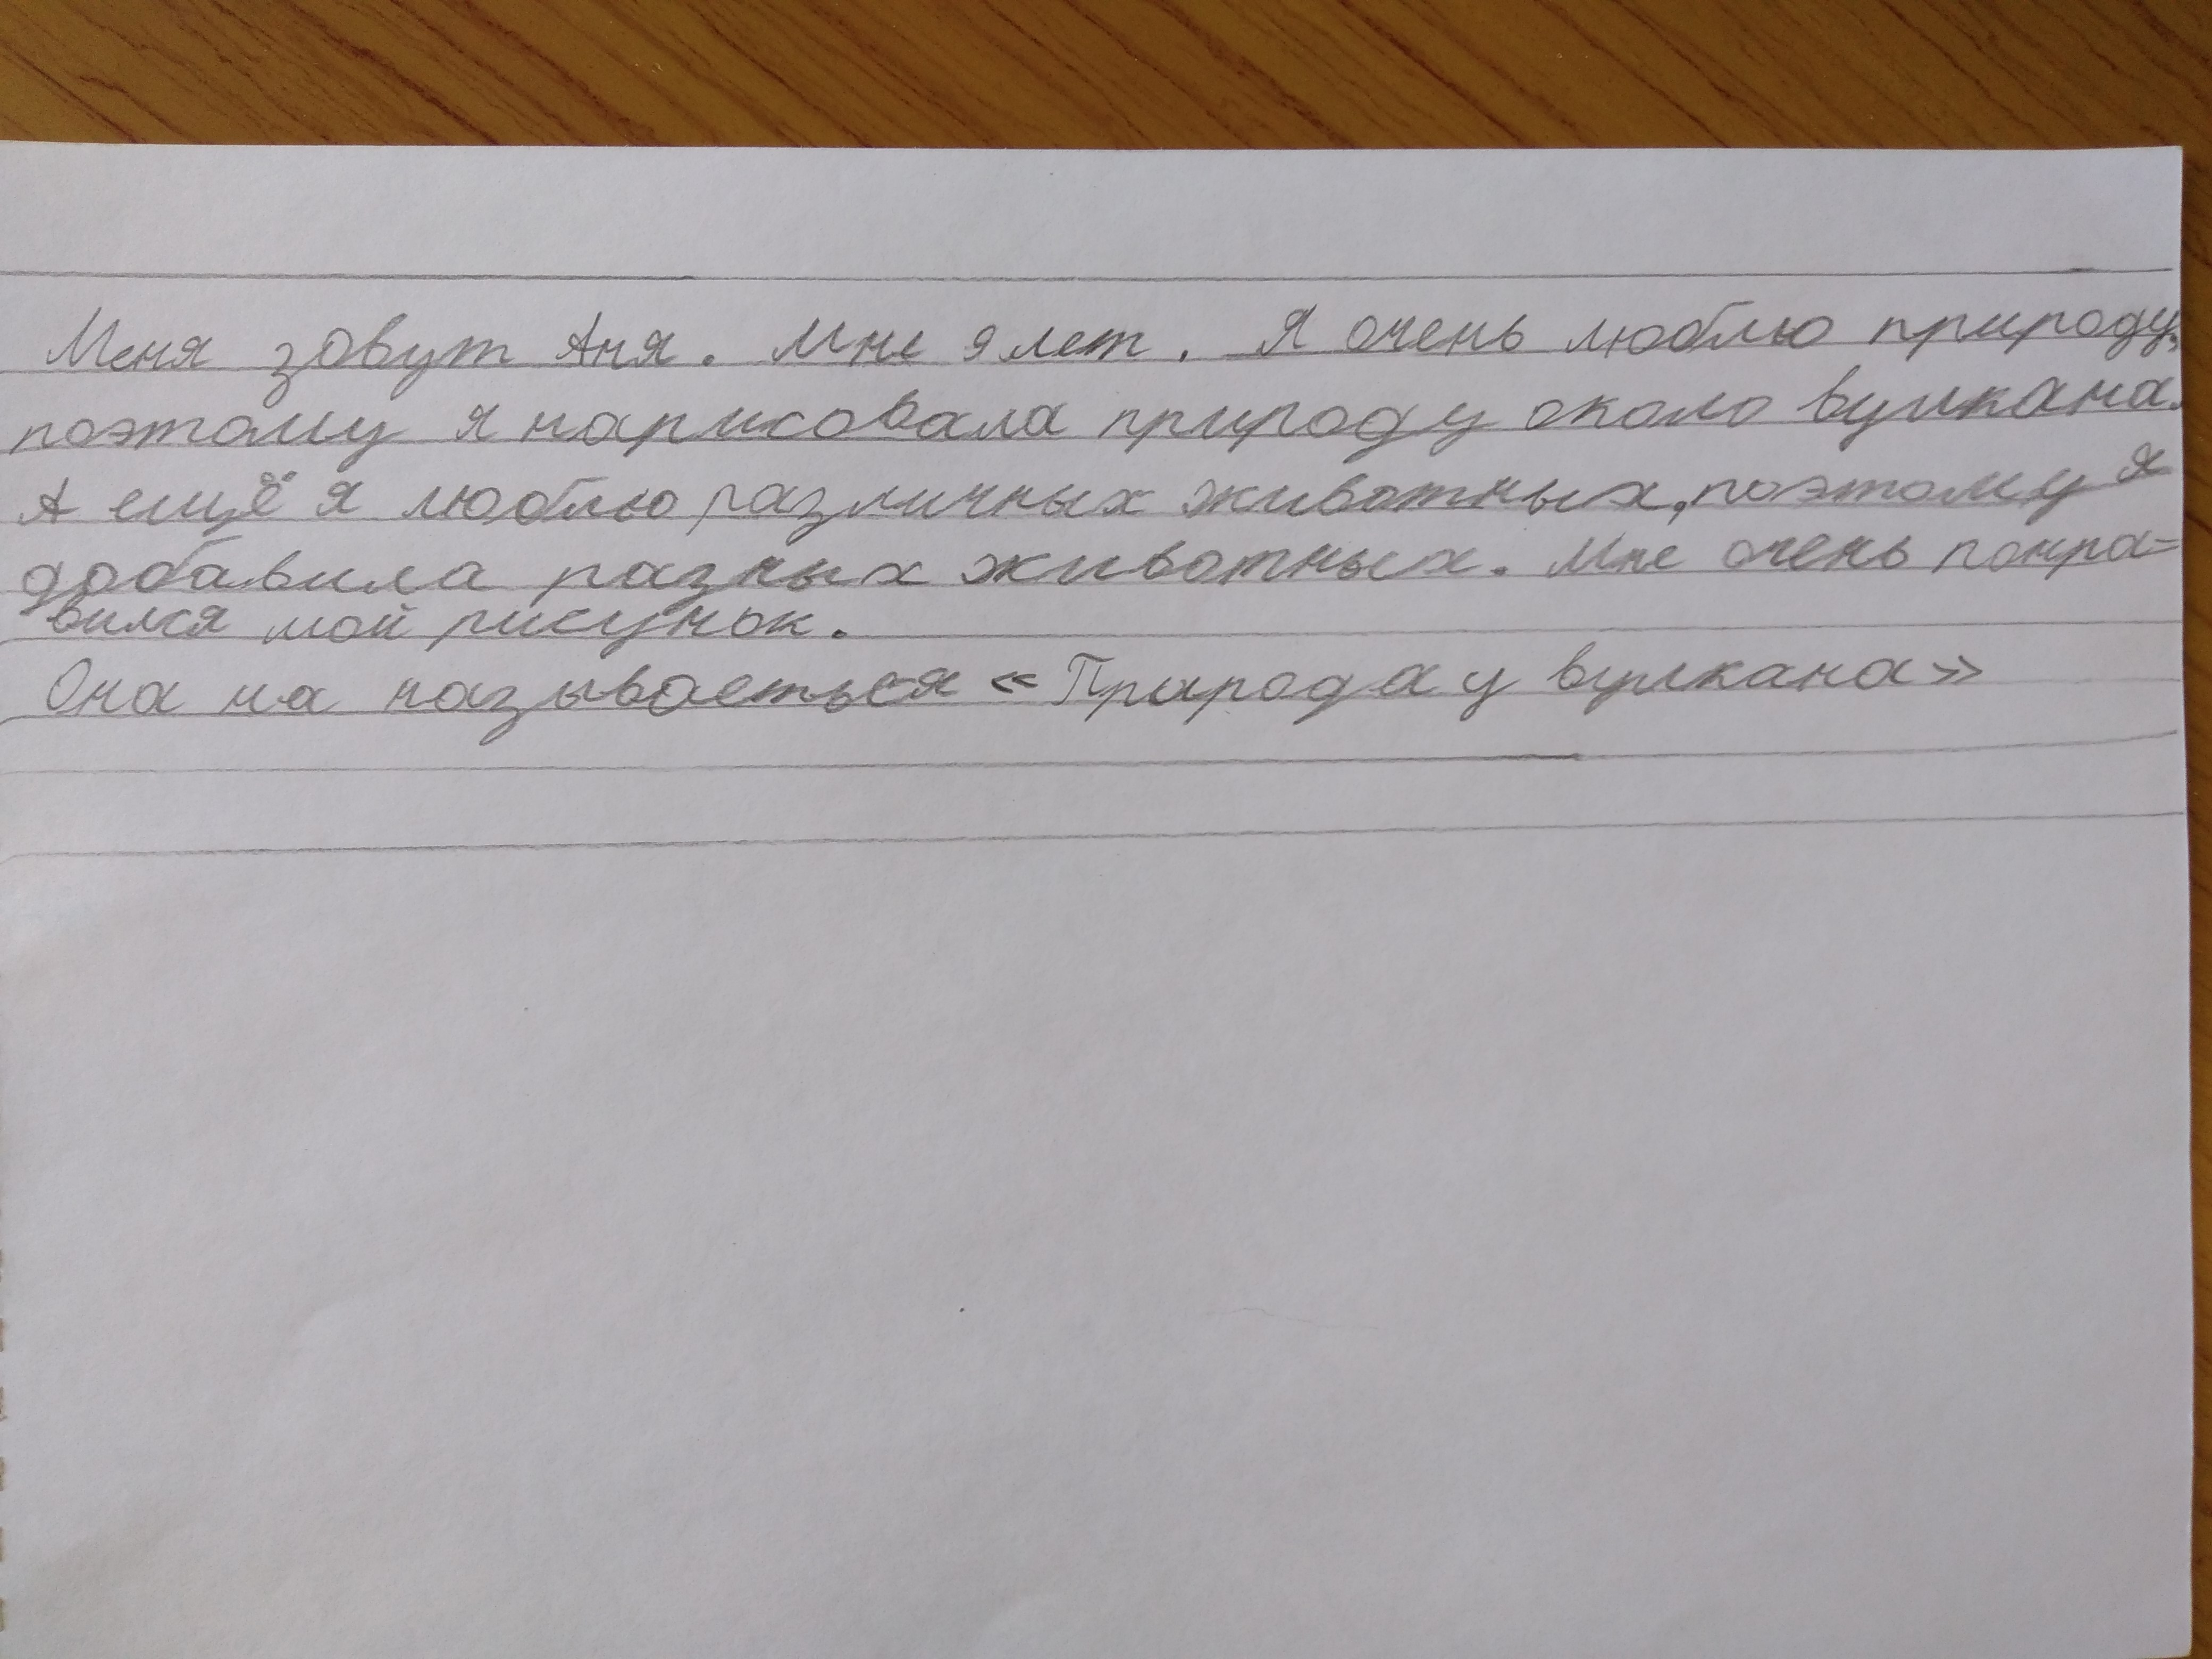 Меня зовут Аня. Мне 9 лет. Я очень люблю природу,
поэтому я нарисовала природу около вулкана.
А ещё я люблю различных животных, поэтому я
добавила разных животных. Мне очень понра-
вился мой рисунок.
Она на называеться «Природа у вулкана»